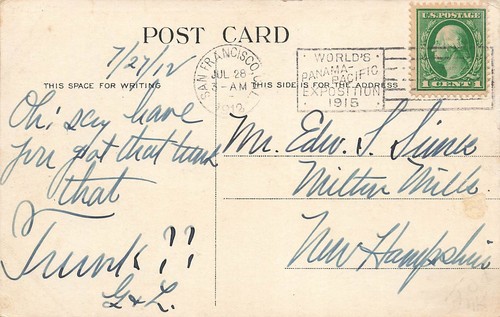 POST CARD
7/27/12
THIS SPACE FOR WRITING
Oh! say have
you got that
that
Trunk??
G & L.
SAN FRANCISCO, CAL.
JUL 28
3-AM
1912
WORLD'S
PANAMA-PACIFIC
EXPOSITION
1915
U.S. POSTAGE
1 CENT 1
THIS SIDE IS FOR THE ADDRESS
Mr. Edw. S.
Milton Mills
New Hampshire